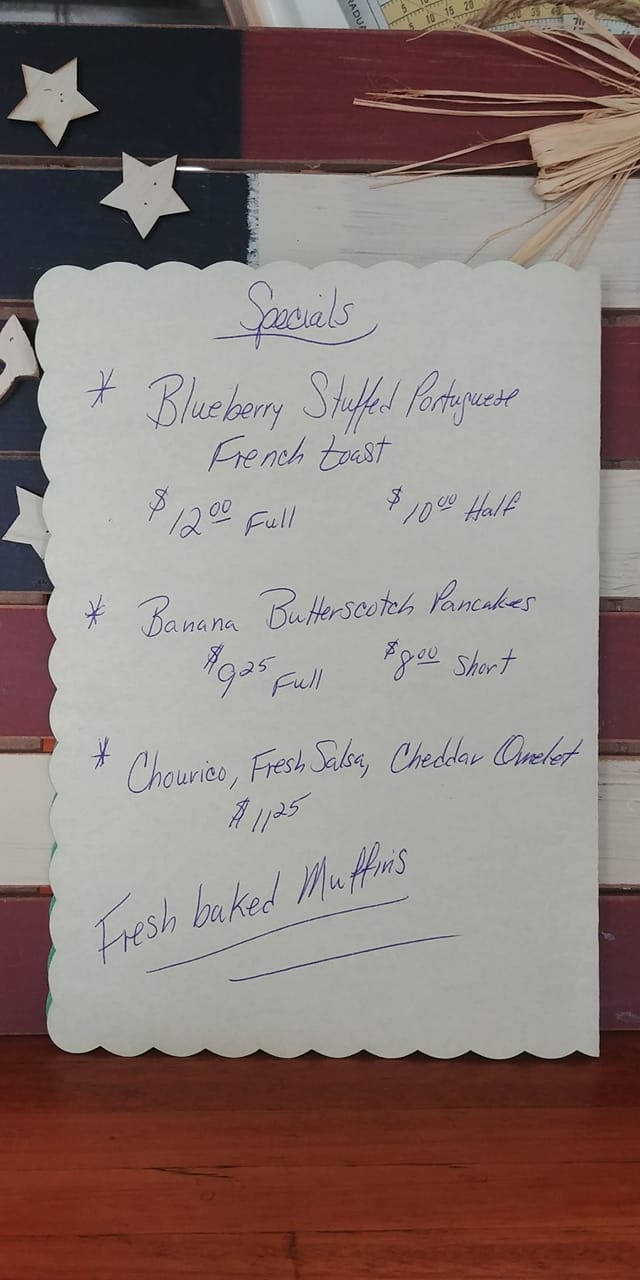 Specials
* Blueberry Stuffed Portuguese
French toast
$12.00 Full $10.00 Half
* Banana Butterscotch Pancakes
$9.25 Full $8.00 Short
* Chourico, Fresh Salsa, Cheddar Omelet
$11.25
Fresh baked Muffins